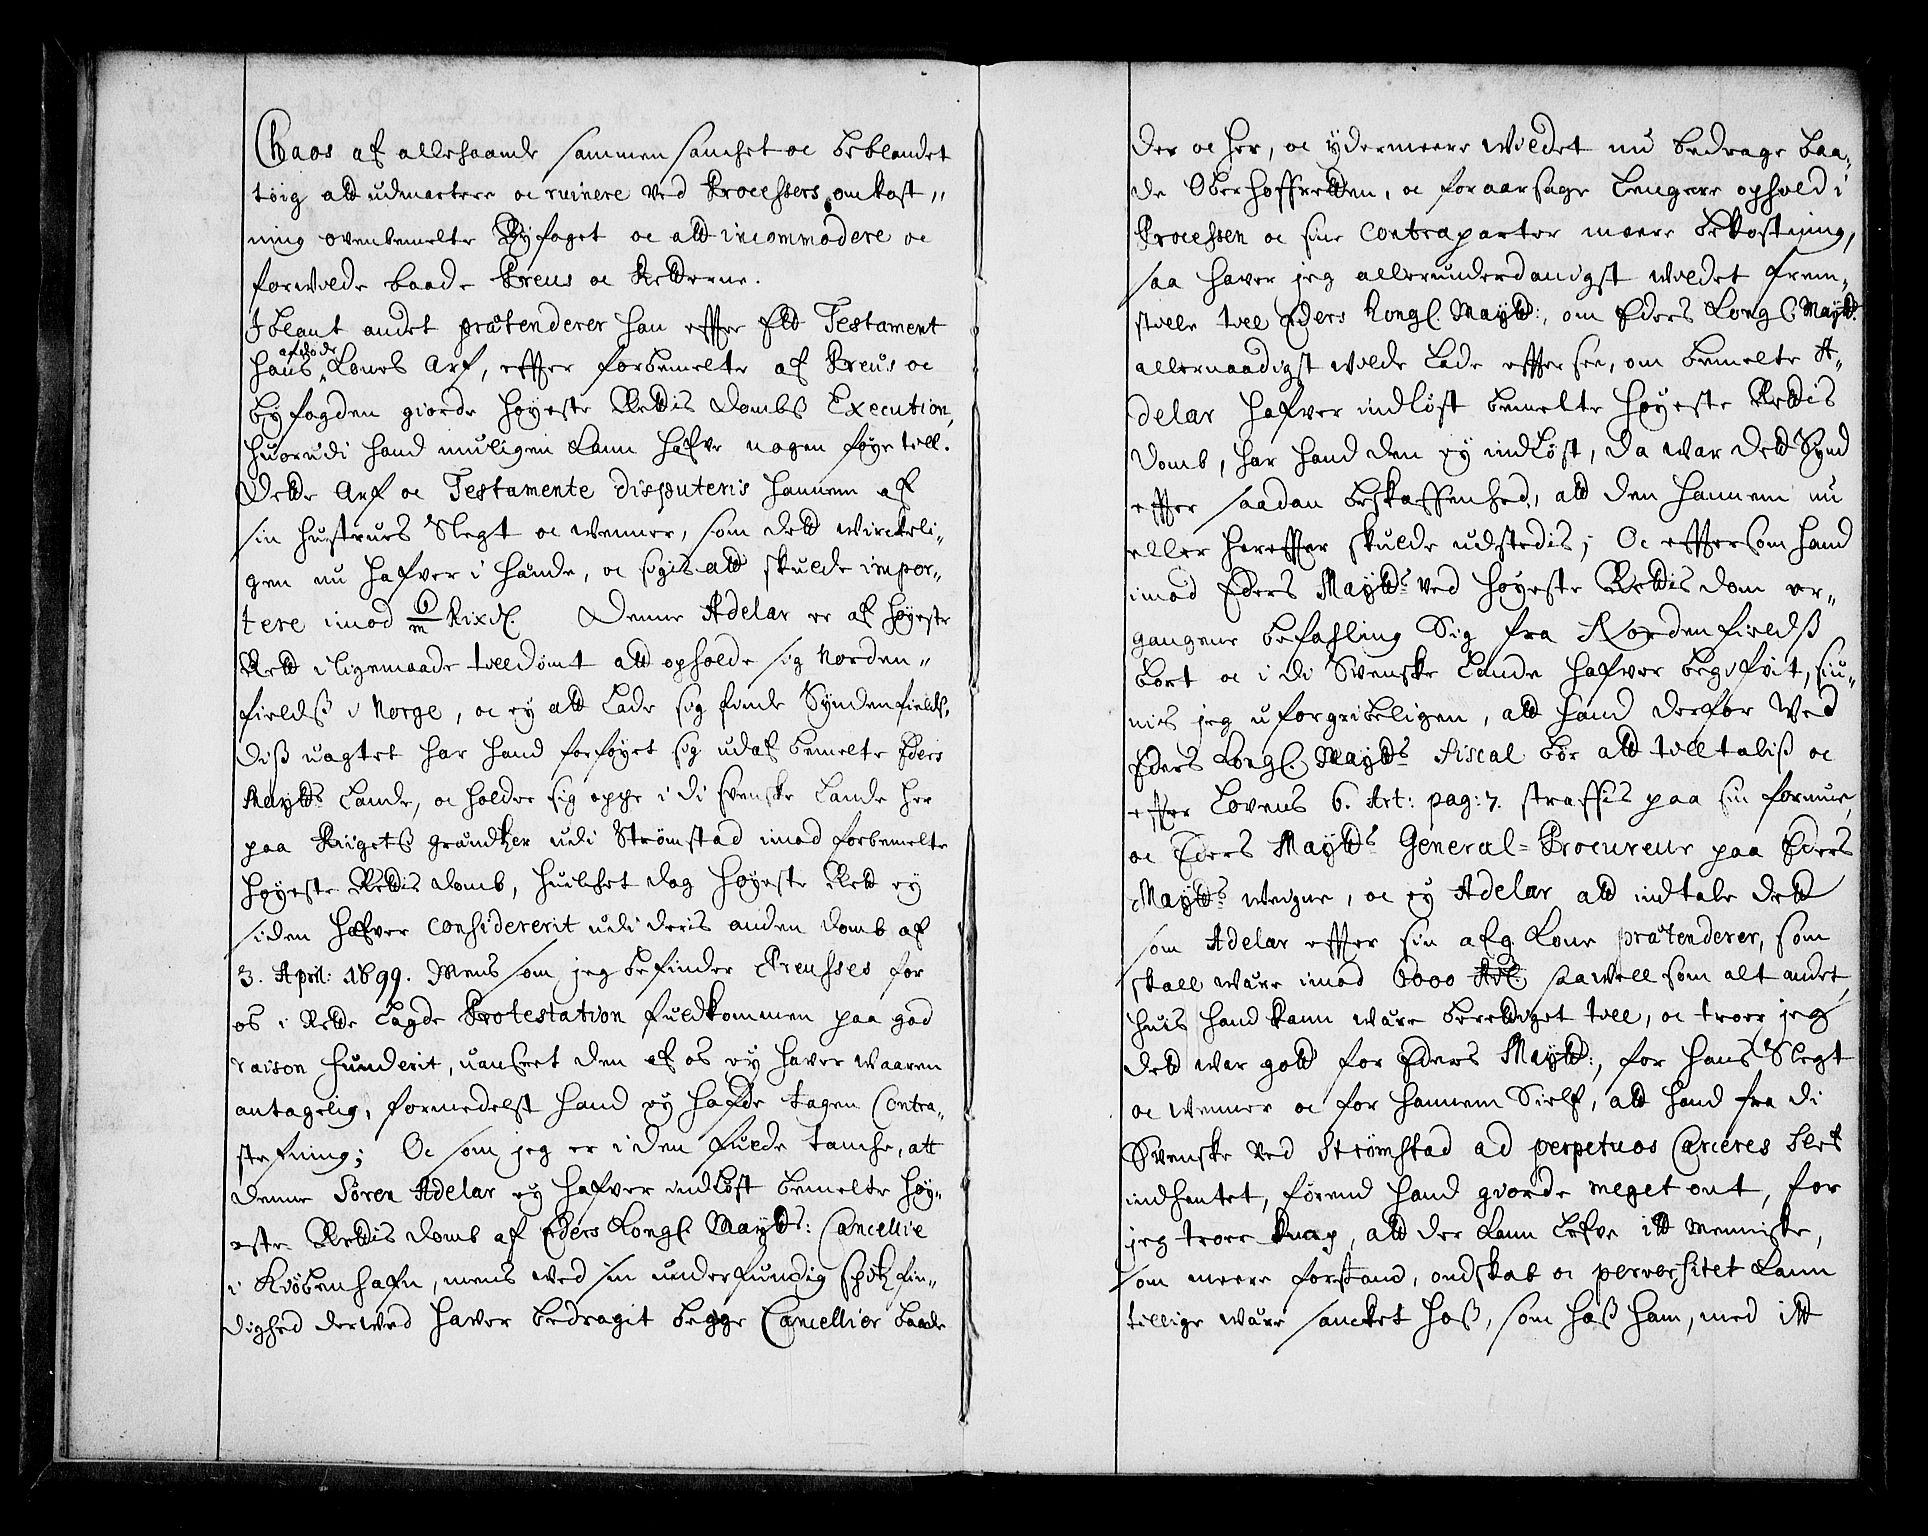 Chaos af allehaande sammensancket oc beblandet
tøig att udmattere oc ruinere ved Processers omkost„
ning ovenbemelte Byfoget oc att incommodere oc
forvilde baade Preus oc Retterne.
Iblant andet prætenderer han effter Ett Testament
hans afdøde Kones Arf, effter forbemelte af Preus oc
byfogden giorde Høyeste Rettis Dombs Execution,
huorudi hand muligen kann hafve nogen føye till.
Dette Arf oc Testamente disputeris hannem af
sin hustrues Slegt oc venner, som dett virckeli„
gen nu hafver i hænde, oc sigis att skulde impor„
tere imod 6/m Rixd. Denne Adelar er af Høyeste
Rett i ligemaade tilldømt att opholde sig Norden„
fieldß i Norge, oc ey att lade sig finde Syndenfields,
diß uagtet har hand forføyet sig udaf bemelte Eders
Maytts Lande, oc holder sig oppe i di Svenske Lande her
paa Riigetß grendtzer udi Strømstad imod forbemelte
Høyeste Rettis Domb, huilchet dog Høyeste Rett ey
siden hafver considererit udi deris anden Domb af
3. April: 1699. Mens som jeg befinder Preusses for
os i Rette lagde Protestation fuldkommen paa god
raison funderit, uanseet den af os ey haver vaaren
antagelig, formedelst hand ey hafde tagen Contra„
stefning; Oc som jeg er i den fulde tancke, att
denne Sören Adelar ey hafver indløst bemelte Høy„
este Rettis Domb af Eders Kongl. Maytts: Cancellie
i Kiøbenhafn, mens ved sin underfundig Spitzfin„
dighed derved haver bedragit begge Cancellier baade
der oc her, oc ydermeere vildet nu bedrage baa„
de Oberhoffretten, oc foraarsage lengere ophold i
Processen oc sine Contraparter meere bekostning,
saa haver jeg allerunderdanigst vildet frem„
stille till Eders Kongl. Maytt:, om Eders Kongl. Maytt.
allernaadigst vilde lade effter see, om bemelte A„
delar hafver indløst bemelte Høyeste Rettis
Domb, har hand den ey indløst, da var dett Synd
effter saadan beskaffenhed, att den hannem nu
eller hereffter skulde udstedis; Oc effter som hand
imod Eders Maytts ved Høyeste Rettis Dom er„
gangene befahling Sig fra Nordenfieldß
bort oc i di Svenske Lande hafver begifvit, siu„
nis jeg uforgribeligen, att hand derfor ved
Eders Kongl. Maytts Fiscal bør att tilltaliß oc
effter Lovens 6. Art: pag: 7. straffis paa sin formue,
oc Eders Maytts General-Procureur paa Eders
Maytts veigne, oc ey Adelar att indtale dett
som Adelar effter sin afg. Kone prætenderer, som
skall være imod 6000 Rd. saavell som alt andet,
huis hand kann være berettiget till, oc troer jeg
dett var gott for Eders Maytt:, for hans Slegt
oc venner oc for hannem Sielf, att hand fra di
Svenske ved Strømstad ad perpetuos Carceres blef
indhentet, førend hand giorde meget ont, for
jeg troer knap, att der kann lefve itt Menniske,
som meere forstand, ondskab oc perversitet kann
tillige være sancket hoß, som hoß ham, med itt